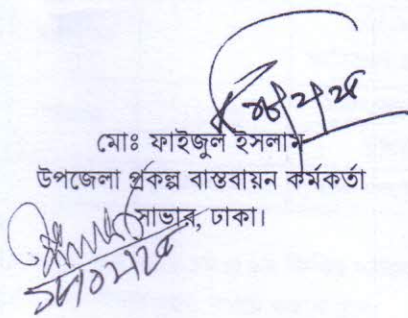 মোঃ ফাইজুল ইসলাম
উপজেলা প্রকল্প বাস্তবায়ন কর্মকর্তা
সাভার, ঢাকা।